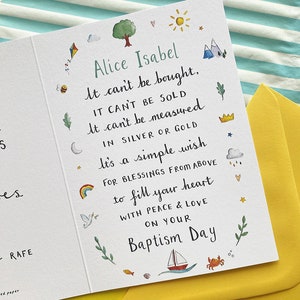 Alice Isabel
It can't be bought,
IT CAN'T BE SOLD
It can't be measured
IN SILVER OR GOLD
It's a simple wish
FOR BLESSINGS FROM ABOVE
to fill your heart
WITH PEACE & LOVE
ON YOUR
Baptism Day
RAFE